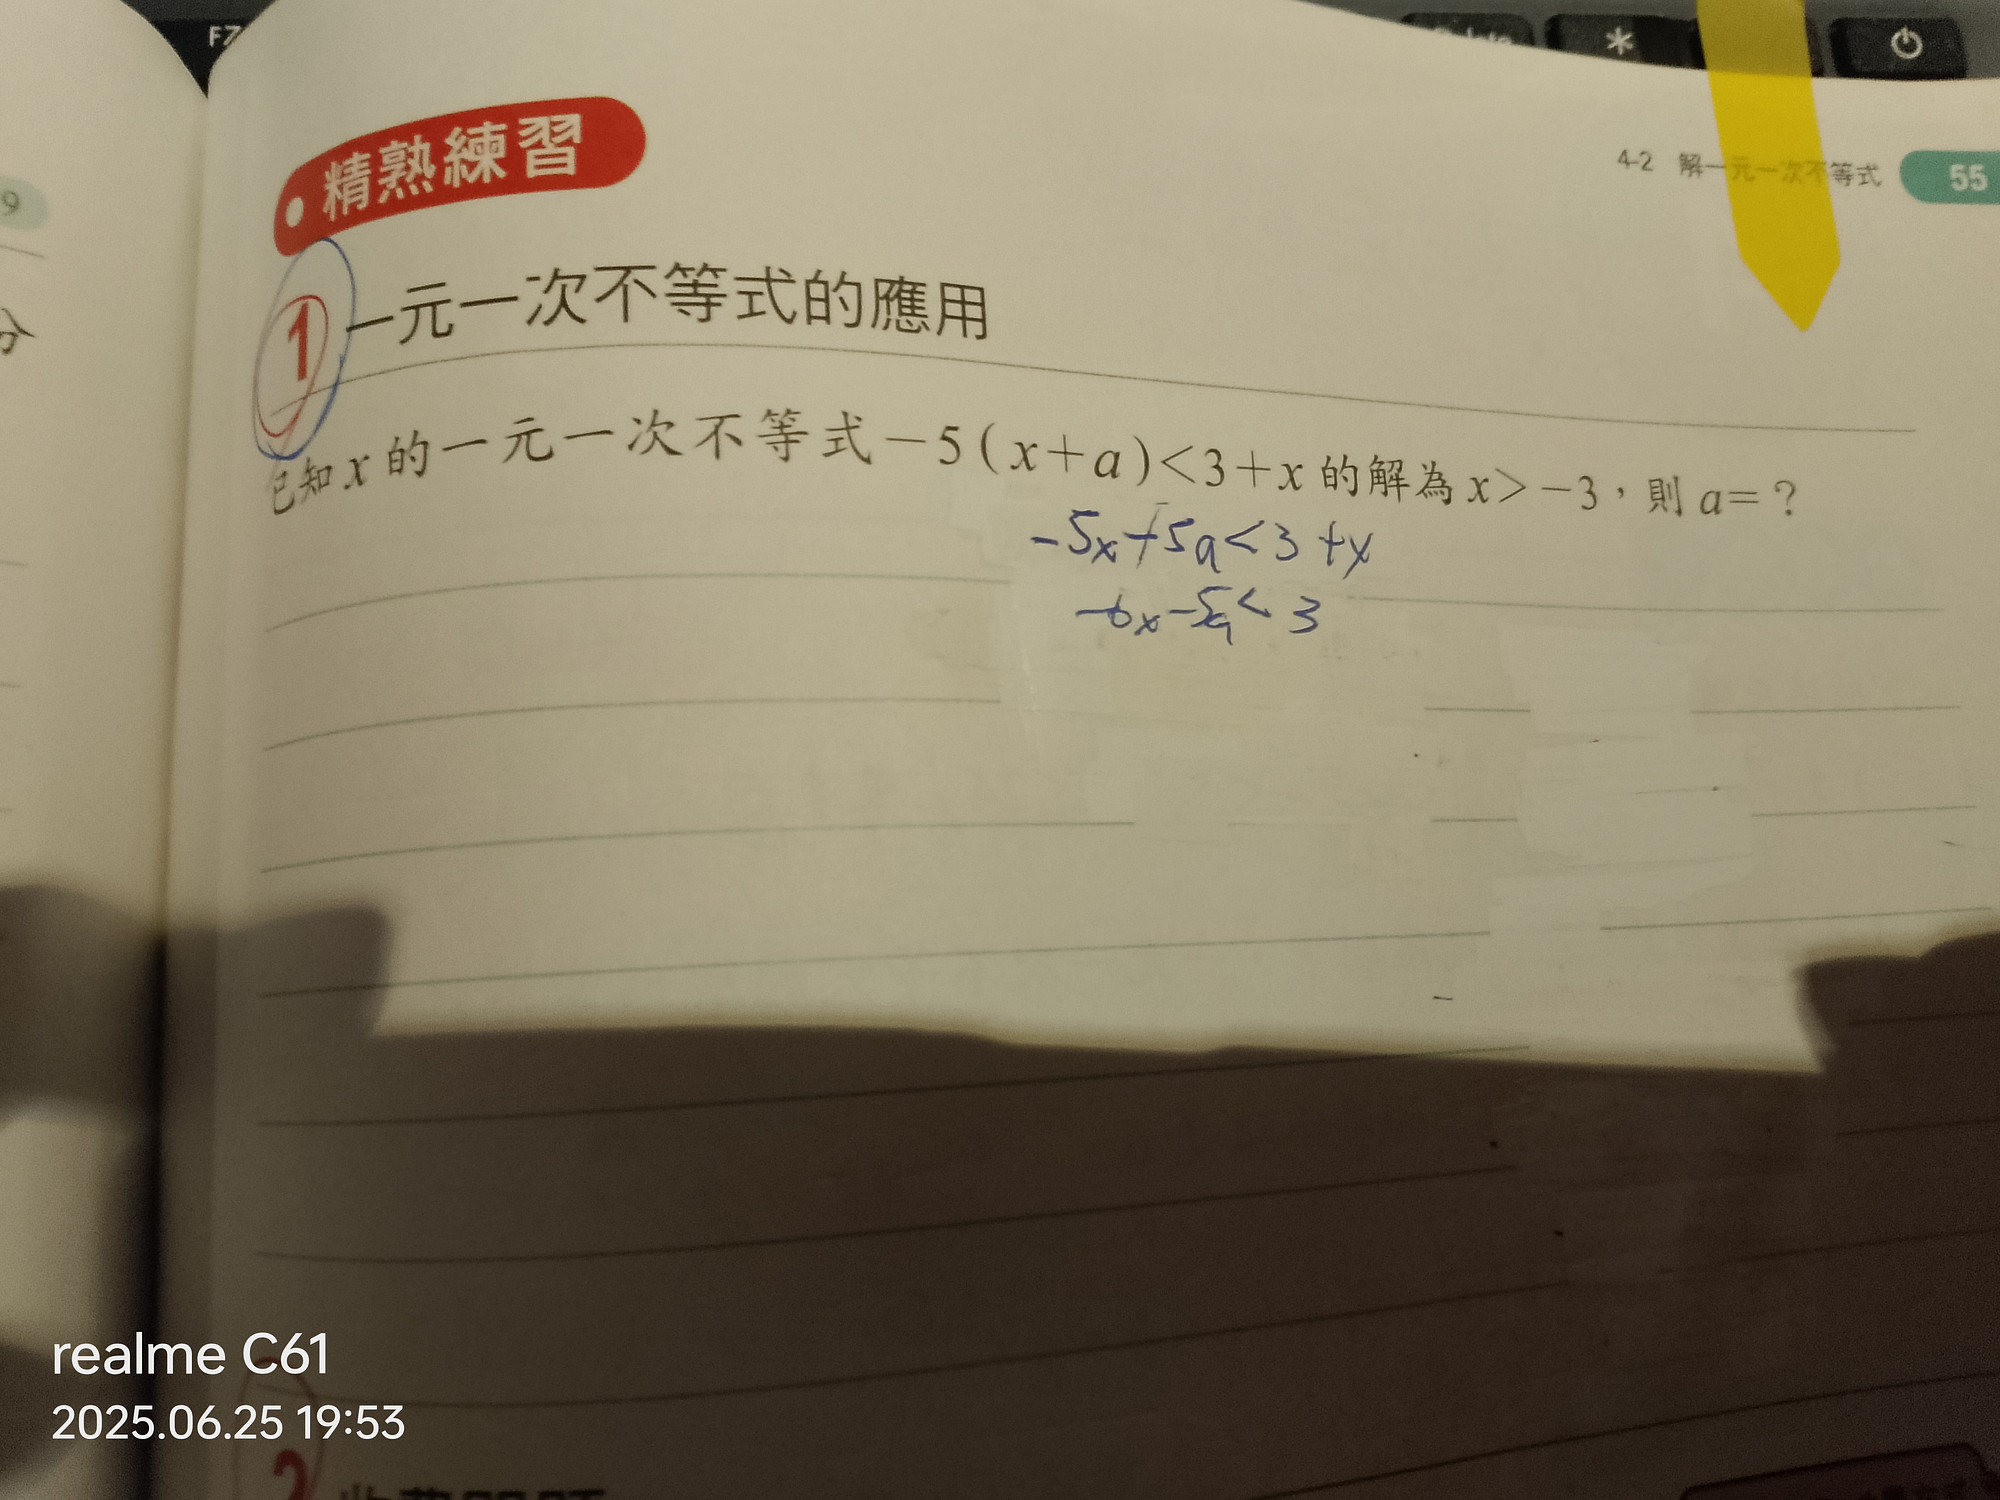 F7
*
9
分
精熟練習
4-2 解一元一次不等式 55
1 一元一次不等式的應用
已知x的一元一次不等式-5(x+a)<3+x的解為x>-3,則a=?
-5x+5a<3+x
-6x-5a<3
realme C61
2025.06.25 19:53
2